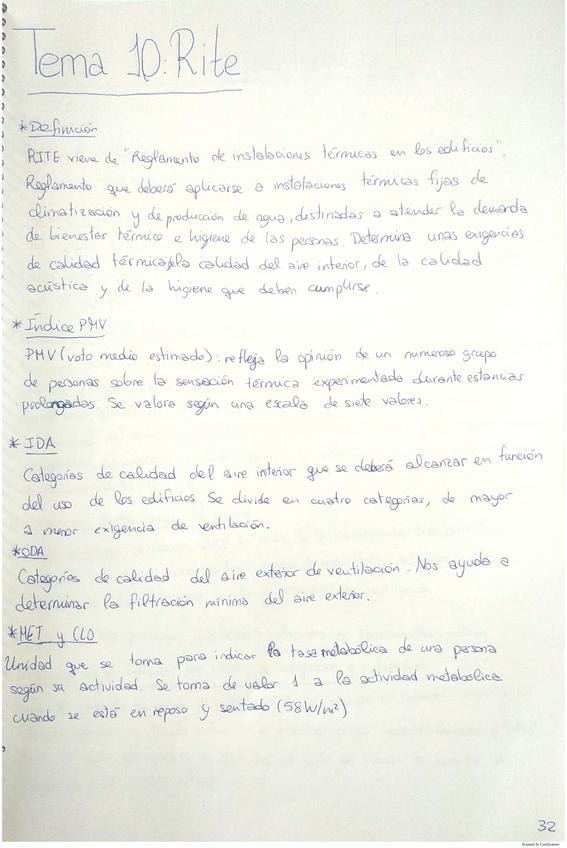 Tema 10: Rite
* Definición
RITE viene de "Reglamento de instalaciones térmicas en los edificios".
Reglamento que deberá aplicarse a instalaciones térmicas fijas de
climatización y de producción de agua, destinadas a atender la demanda
de bienestar térmico e higiene de las personas. Determina unas exigencias
de calidad térmica, de la calidad del aire interior, de la calidad
acústica y de la higiene que deben cumplirse.
* Índice PMV
PMV (voto medio estimado): refleja la opinión de un numeroso grupo
de personas sobre la sensación térmica experimentada durante estancias
prolongadas. Se valora según una escala de siete valores.
* IDA
Categorías de calidad del aire interior que se deberá alcanzar en función
del uso de los edificios. Se divide en cuatro categorías, de mayor
a menor exigencia de ventilación.
* ODA
Categorías de calidad del aire exterior de ventilación. Nos ayuda a
determinar la filtración mínima del aire exterior.
* MET y CLO
Unidad que se toma para indicar la tasa metabólica de una persona
según su actividad. Se toma de valor 1 a la actividad metabólica
cuando se está en reposo y sentado (58W/m²)
32
Scanned by CamScanner